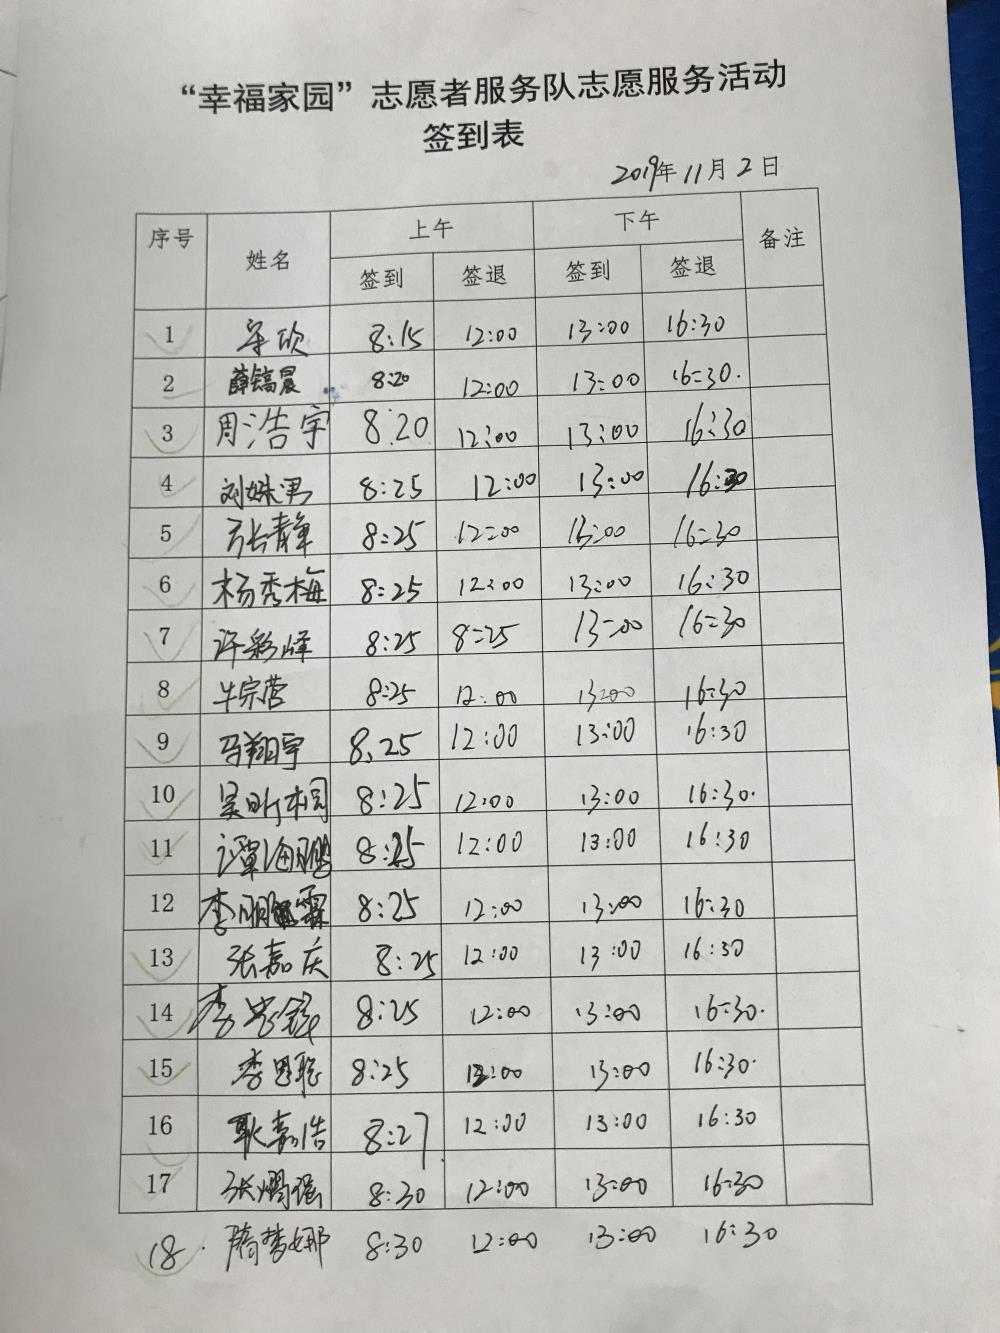 “幸福家园”志愿者服务队志愿服务活动
签到表
2019年11月2日
序号 姓名 上午 下午 备注
签到 签退 签到 签退
1 8:15 12:00 13:00 16:30
2 薛镐晨 8:20 12:00 13:00 16:30.
3 周浩宇 8.20 12:00 13:00 16:30
4 刘姝男 8:25 12:00 13:00 16:30
5 张静 8:25 12:00 13:00 16:30
6 杨秀梅 8:25 12:00 13:00 16:30
7 许彩峰 8:25 8:25 13:00 16:30
8 牛宗营 8:25 12:00 13:00 16:30
9 马翔宇 8.25 12:00 13:00 16:30
10 吴昕桐 8:25 12:00 13:00 16:30.
11 谭海鹏 8:25 12:00 13:00 16:30
12 李朋霖 8:25 12:00 13:00 16:30
13 张嘉庆 8:25 12:00 13:00 16:30
14 8:25 12:00 13:00 16:30.
15 李思聪 8:25 12:00 13:00 16:30.
16 耿嘉浩 8:27 12:00 13:00 16:30
17 8:30 12:00 13:00 16:30
18. 隋梦娜 8:30 12:00 13:00 16:30